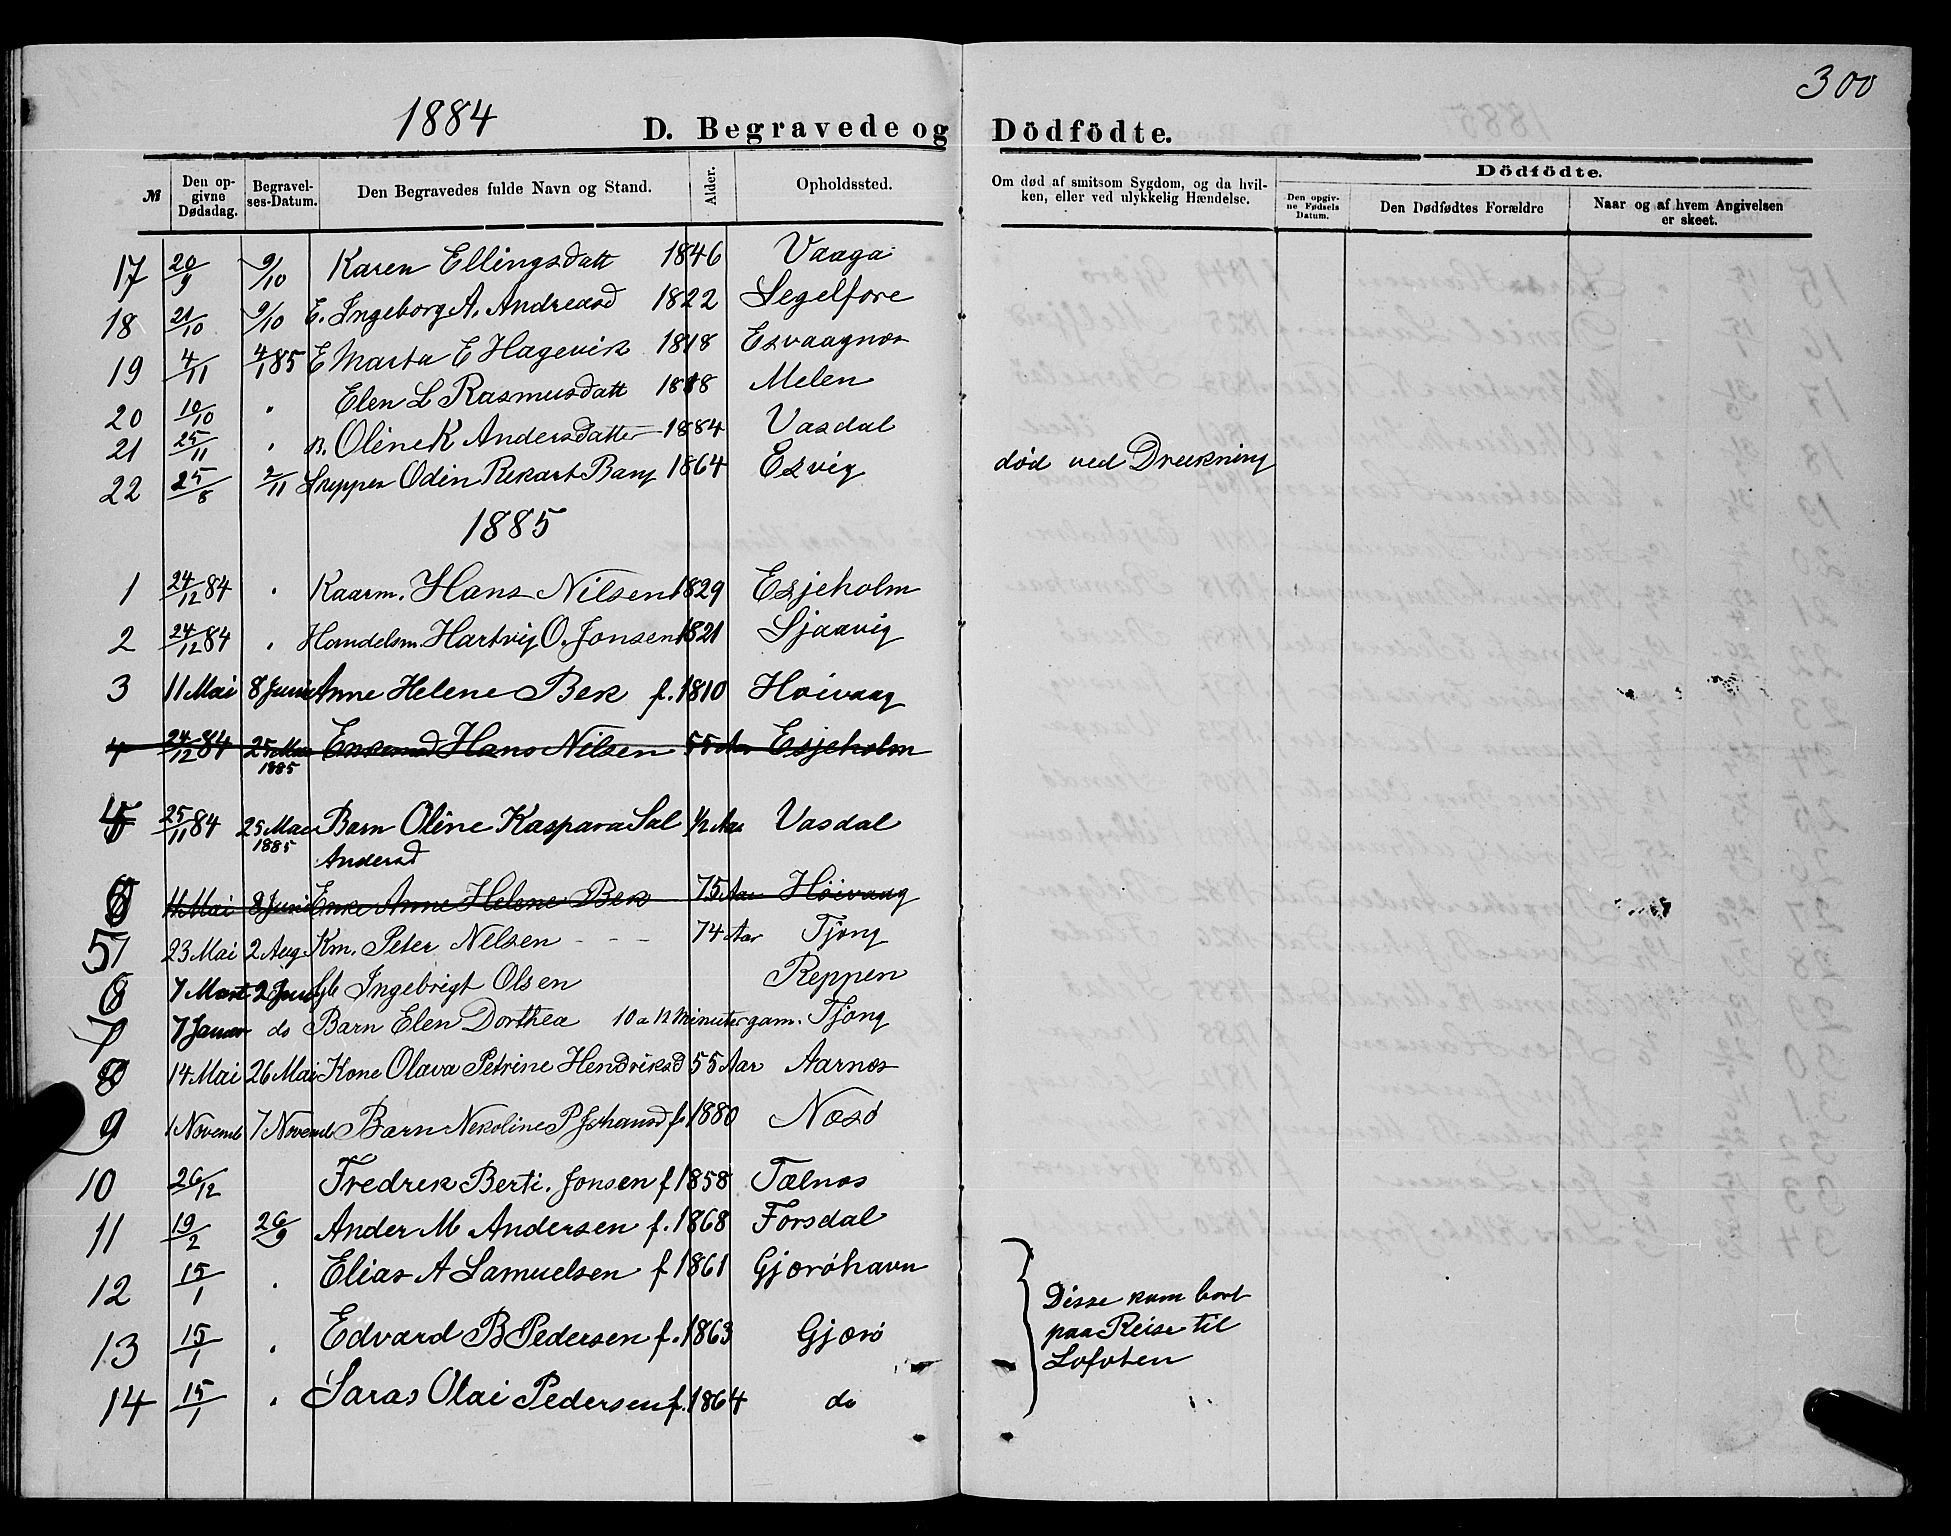 300
1884
D. Begravede og Dödfödte.
№ | Den opgivne Dødsdag. | Begravelses-Datum. | Den Begravedes fulde Navn og Stand. | Alder. | Opholdssted. | Om død af smitsom Sygdom, og da hvilken, eller ved ulykkelig Hændelse. | Dödfödte. | Den opgivne Fødsels Datum. | Den Dødfødtes Forældre | Naar og af hvem Angivelsen er skeet.
17 20/9 9/10 Karen Ellingsdatt 1846 Vaaga
18 21/10 9/10 E. Ingeborg A. Andreasd 1822 Segelfore
19 4/11 4/1 85 E Marta E Hagevik 1818 Esvaagnes
20 10/10 " Elen L Rasmusdatt 1818 Melen
21 25/11 " B. Oline K Andersdatter 1884 Vasdal
22 25/8 2/11 Skipper Odin Rekart Bang 1864 Esvig død ved Drukning
1885
1 24/12 84 " Kaarm. Hans Nilsen 1829 Esjeholm
2 24/12 84 " Handelsm. Hartvig O. Jonsen 1821 Sjaavig
3 11 Mai 8 Juni Anne Helene Bek f. 1810 Høivaag
4 24/12 84 25 Mai 1885 Enkemd Hans Nilsen 55 Aar Esjeholm
4 25/11 84 25 Mai 1885 Barn Oline Kaspara Sal ½ Aar Vasdal
Andersd
6 11 Mai 8 Juni Enke Anne Helene Bek 75 Aar Høivaag
5 23 Mai 2 Aug Km. Peter Nilsen - - - 74 Aar Tjong
6 7 Mart 2 Juni Ingebrigt Olsen Reppen
7 7 Januar do Barn Elen Dorthea 10 a 12 Minuter gam. Tjong
8 14 Mai 26 Mai Kone Olava Petrine Hendriksd 55 Aar Aarnes
9 1 Novemb 7 Novemb Barn Nekoline P Johansd f. 1880 Næsø
10 26/12 Fredrik Berti. Jonsen f 1858 Telnes
11 19/2 26/9 Ander M Andersen f. 1868 Forsdal
12 15/1 " Elias A Samuelsen f 1861 Gjerøhavn
13 15/1 " Edvard B Pedersen f. 1863 Gjerø
14 15/1 " Saras Olai Pedersen f. 1864 do
Disse kom bort
paa Reise til
Lofoten